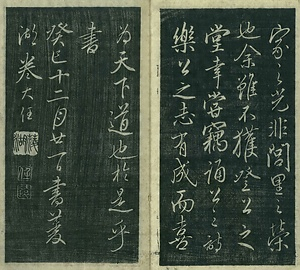 家之光非閭里之榮
也余雖不獲登公之
堂幸嘗竊誦公之詩
樂公之志有成而喜
為天下道也於是乎
書
癸巳十二月廿一日書菱
湖卷大任